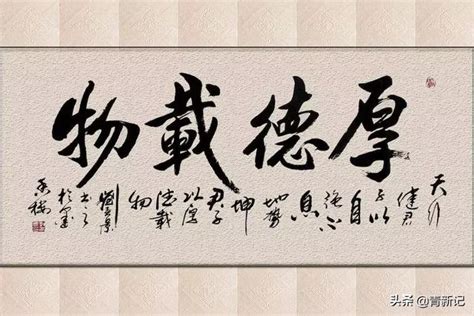 厚德載物
天行
健君
子以
自
强不
息
地势
坤
君子
以厚
德載
物
书之
于墨
头条 @菁新记